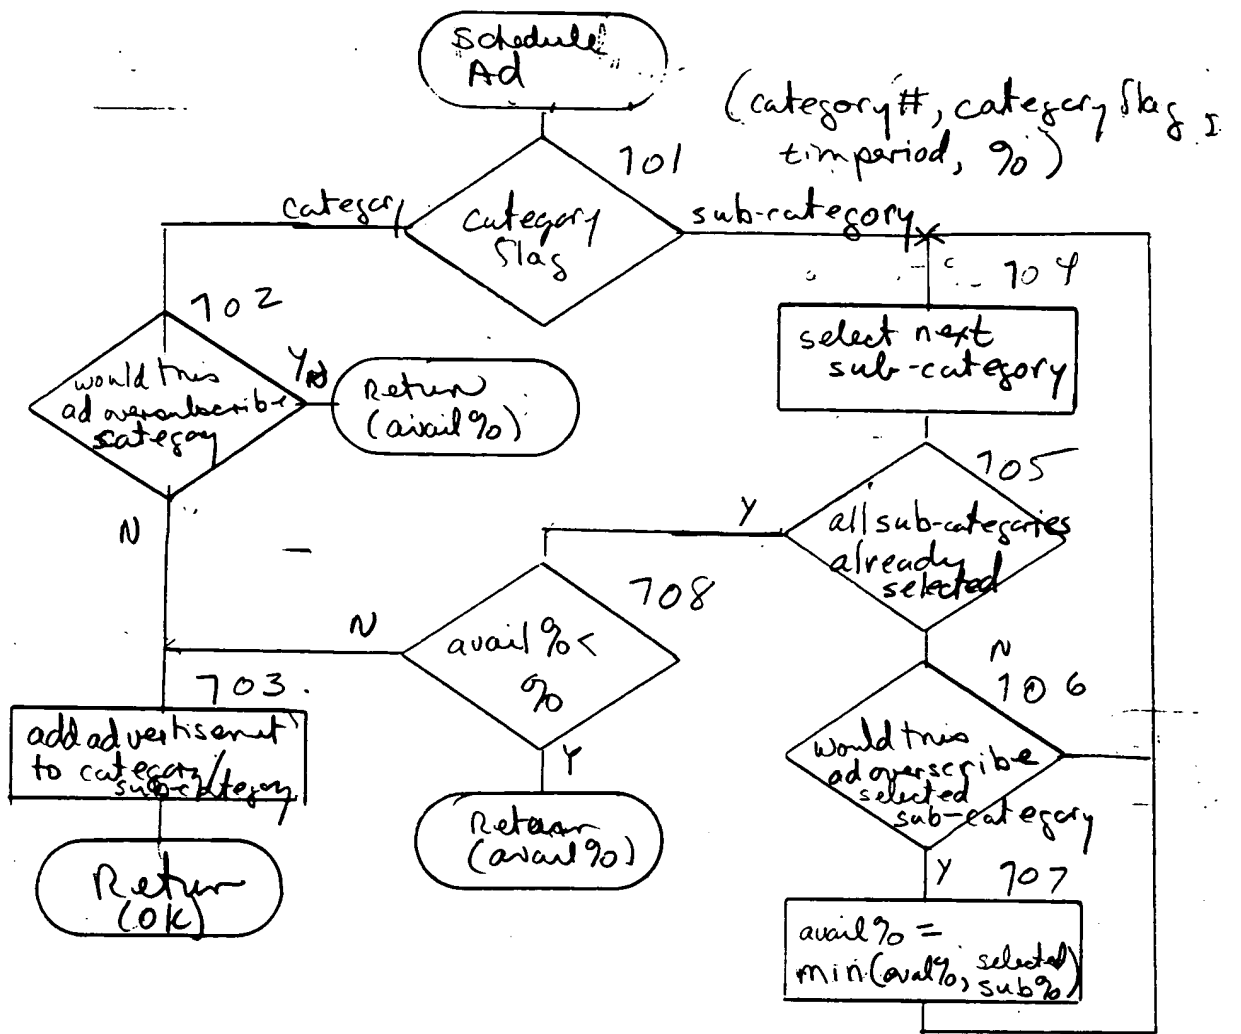 "Schedule"
Ad
(category#, category flag,
timperiod, %)
701
category
category
flag
sub-category
702
would this
ad oversubscribe
category
Y
Return
(avail %)
N
704
select next
sub-category
705
all sub-categories
already
selected
Y
N
708
avail % <
%
N
Y
Return
(avail %)
703.
add advertisement
to category/
sub-category
Return
(OK)
706
would this
ad overscribe
selected
sub-category
Y
707
avail % =
min(avail%, selected
sub%)